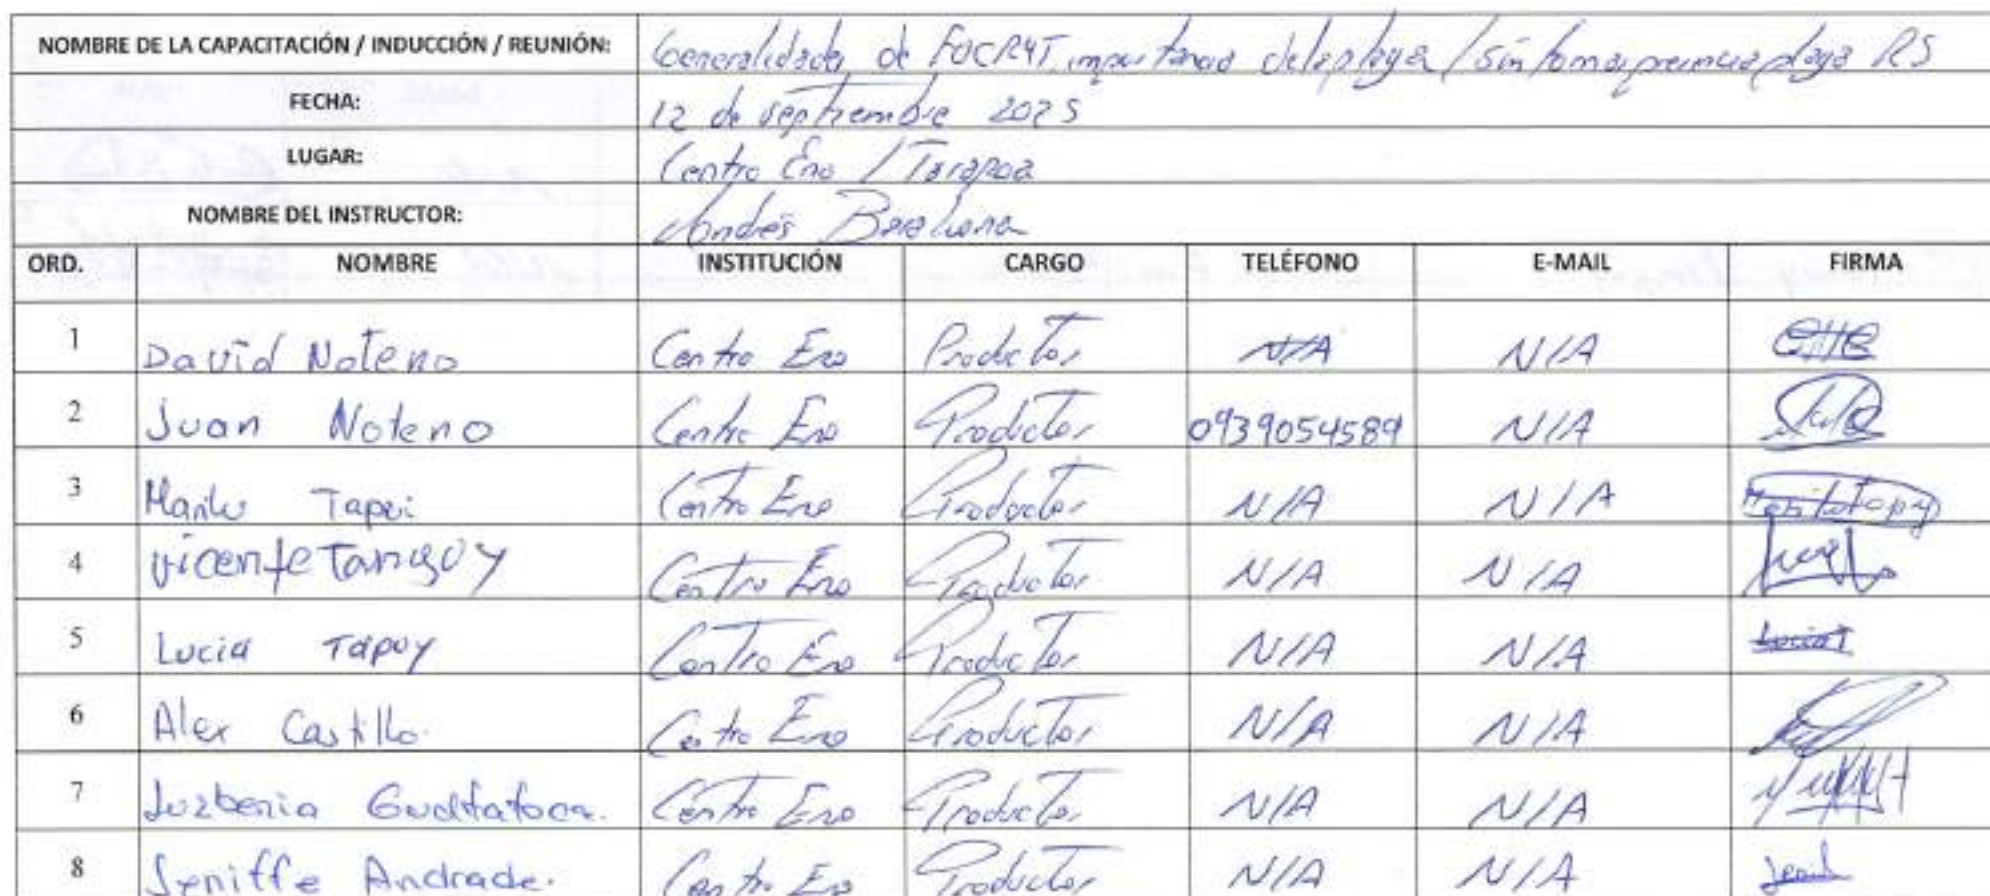 NOMBRE DE LA CAPACITACIÓN / INDUCCIÓN / REUNIÓN: Generalidades de FOCR4T, importancia de la plaga / síntoma presencia plaga RS
FECHA: 12 de septiembre 2025
LUGAR: Centro Eno / Tarapoa
NOMBRE DEL INSTRUCTOR: Andrés Barahona
ORD. NOMBRE INSTITUCIÓN CARGO TELÉFONO E-MAIL FIRMA
1 David Noteno Centro Eno Productor N/A N/A
2 Juan Noteno Centro Eno Productor 0939054589 N/A
3 Marilu Tapui Centro Eno Productor N/A N/A
4 Vicente Tanguoy Centro Eno Productor N/A N/A
5 Lucia Tapuy Centro Eno Productor N/A N/A Lucia T
6 Alex Castillo. Centro Eno Productor N/A N/A
7 Luzbenia Guatatoca. Centro Eno Productor N/A N/A
8 Jeniffe Andrade. Centro Eno Productor N/A N/A